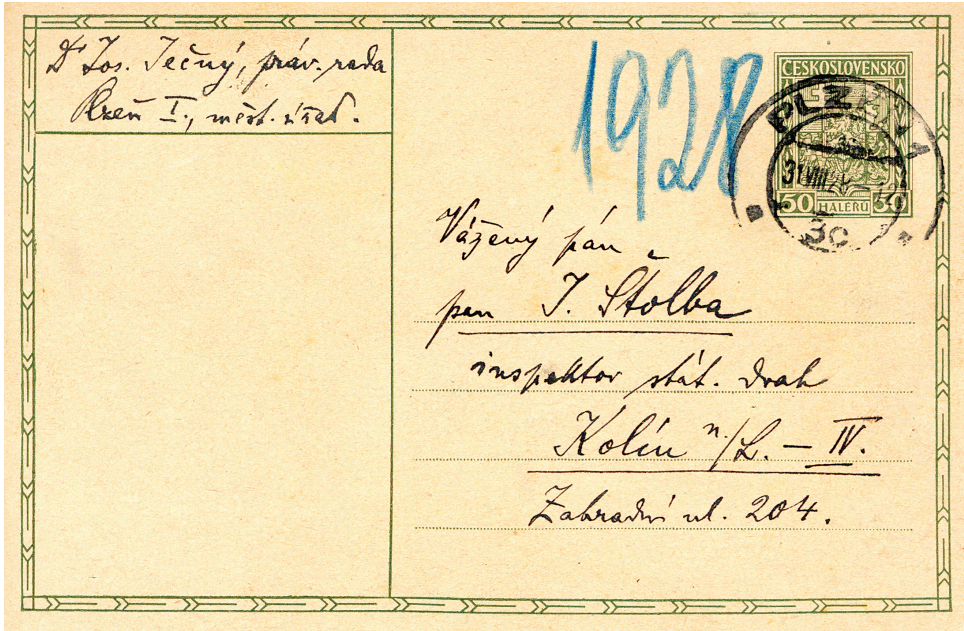 Dr Jos. Ječný, práv. rada
Plzeň I., měst. úřad.
1928
ČESKOSLOVENSKO
PLZEŇ 1
31.VIII.28
50 HALÉŘŮ 50
3c
Vážený pán
pan J. Štolba
inspektor stát. drah
Kolín n/L. – IV.
Zahradní ul. 204.